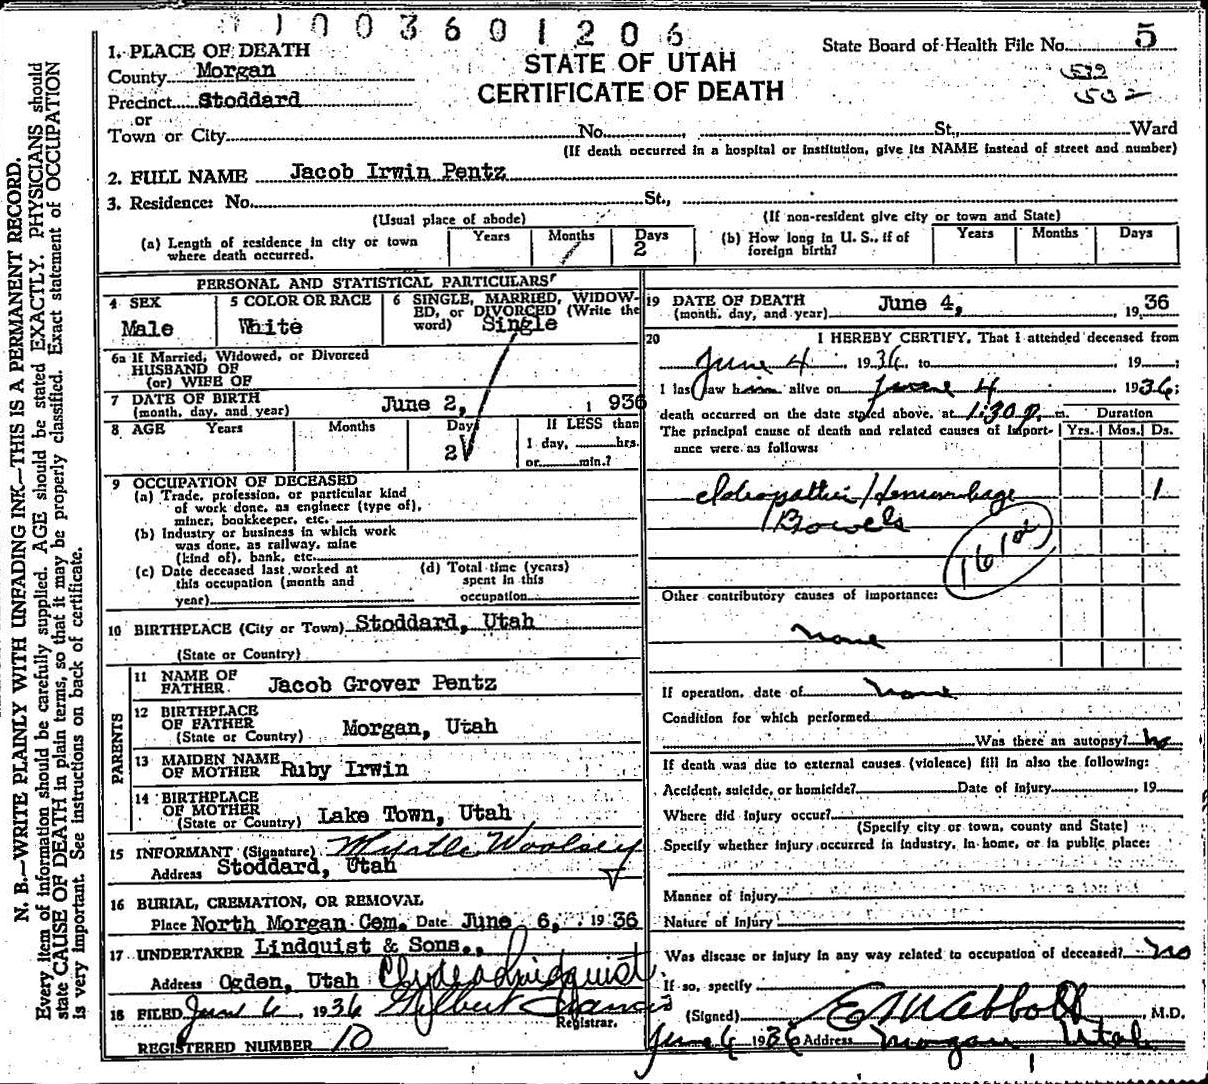 1003601206
State Board of Health File No. 5
STATE OF UTAH
CERTIFICATE OF DEATH
532
1. PLACE OF DEATH
County Morgan
Precinct Stoddard
or
Town or City No. St., Ward
(If death occurred in a hospital or institution, give its NAME instead of street and number)
2. FULL NAME Jacob Irwin Pentz
3. Residence: No. St.,
(Usual place of abode) (If non-resident give city or town and State)
(a) Length of residence in city or town where death occurred. Years Months Days 2
(b) How long in U. S., if of foreign birth? Years Months Days
PERSONAL AND STATISTICAL PARTICULARS
4 SEX Male
5 COLOR OR RACE White
6 SINGLE, MARRIED, WIDOWED, OR DIVORCED (Write the word) Single
6a If Married, Widowed, or Divorced
HUSBAND OF
(or) WIFE OF
7 DATE OF BIRTH
(month, day, and year) June 2, 1936
8 AGE Years Months Days 2
If LESS than
1 day, hrs.
or min.?
9 OCCUPATION OF DECEASED
(a) Trade, profession, or particular kind
of work done, as engineer (type of),
miner, bookkeeper, etc.
(b) Industry or business in which work
was done, as railway, mine
(kind of), bank, etc.
(c) Date deceased last worked at
this occupation (month and
year)
(d) Total time (years)
spent in this
occupation
10 BIRTHPLACE (City or Town) Stoddard, Utah
(State or Country)
PARENTS
11 NAME OF
FATHER Jacob Grover Pentz
12 BIRTHPLACE
OF FATHER
(State or Country) Morgan, Utah
13 MAIDEN NAME
OF MOTHER Ruby Irwin
14 BIRTHPLACE
OF MOTHER
(State or Country) Lake Town, Utah
15 INFORMANT (Signature) Myrtle Woolsey
Address Stoddard, Utah
16 BURIAL, CREMATION, OR REMOVAL
Place North Morgan Cem. Date June 6, 1936
17 UNDERTAKER Lindquist & Sons.,
Address Ogden, Utah Clyde Lindquist
18 FILED June 6, 1936 Gilbert Francis
Registrar.
REGISTERED NUMBER 10
19 DATE OF DEATH
(month, day, and year) June 4, 1936
20 I HEREBY CERTIFY, That I attended deceased from
June 4, 1936 to 19 ;
I last saw him alive on June 4 1936;
death occurred on the date stated above, at 1:30 P. m.
The principal cause of death and related causes of importance were as follows:
Duration
Yrs. Mos. Ds.
Idiopathic Hemorrhage 1
Bowels
161d
Other contributory causes of importance:
none
If operation, date of none
Condition for which performed
Was there an autopsy? no
If death was due to external causes (violence) fill in also the following:
Accident, suicide, or homicide? Date of Injury 19
Where did injury occur?
(Specify city or town, county and State)
Specify whether injury occurred in industry, in home, or in public place:
Manner of injury
Nature of Injury
Was disease or injury in any way related to occupation of deceased? no
If so, specify
(Signed) E M Abbott, M.D.
June 6 1936 Address Morgan Utah
N. B.—WRITE PLAINLY WITH UNFADING INK—THIS IS A PERMANENT RECORD.
Every item of information should be carefully supplied. AGE should be stated EXACTLY. PHYSICIANS should
state CAUSE OF DEATH in plain terms, so that it may be properly classified. Exact statement of OCCUPATION
is very important. See instructions on back of certificate.